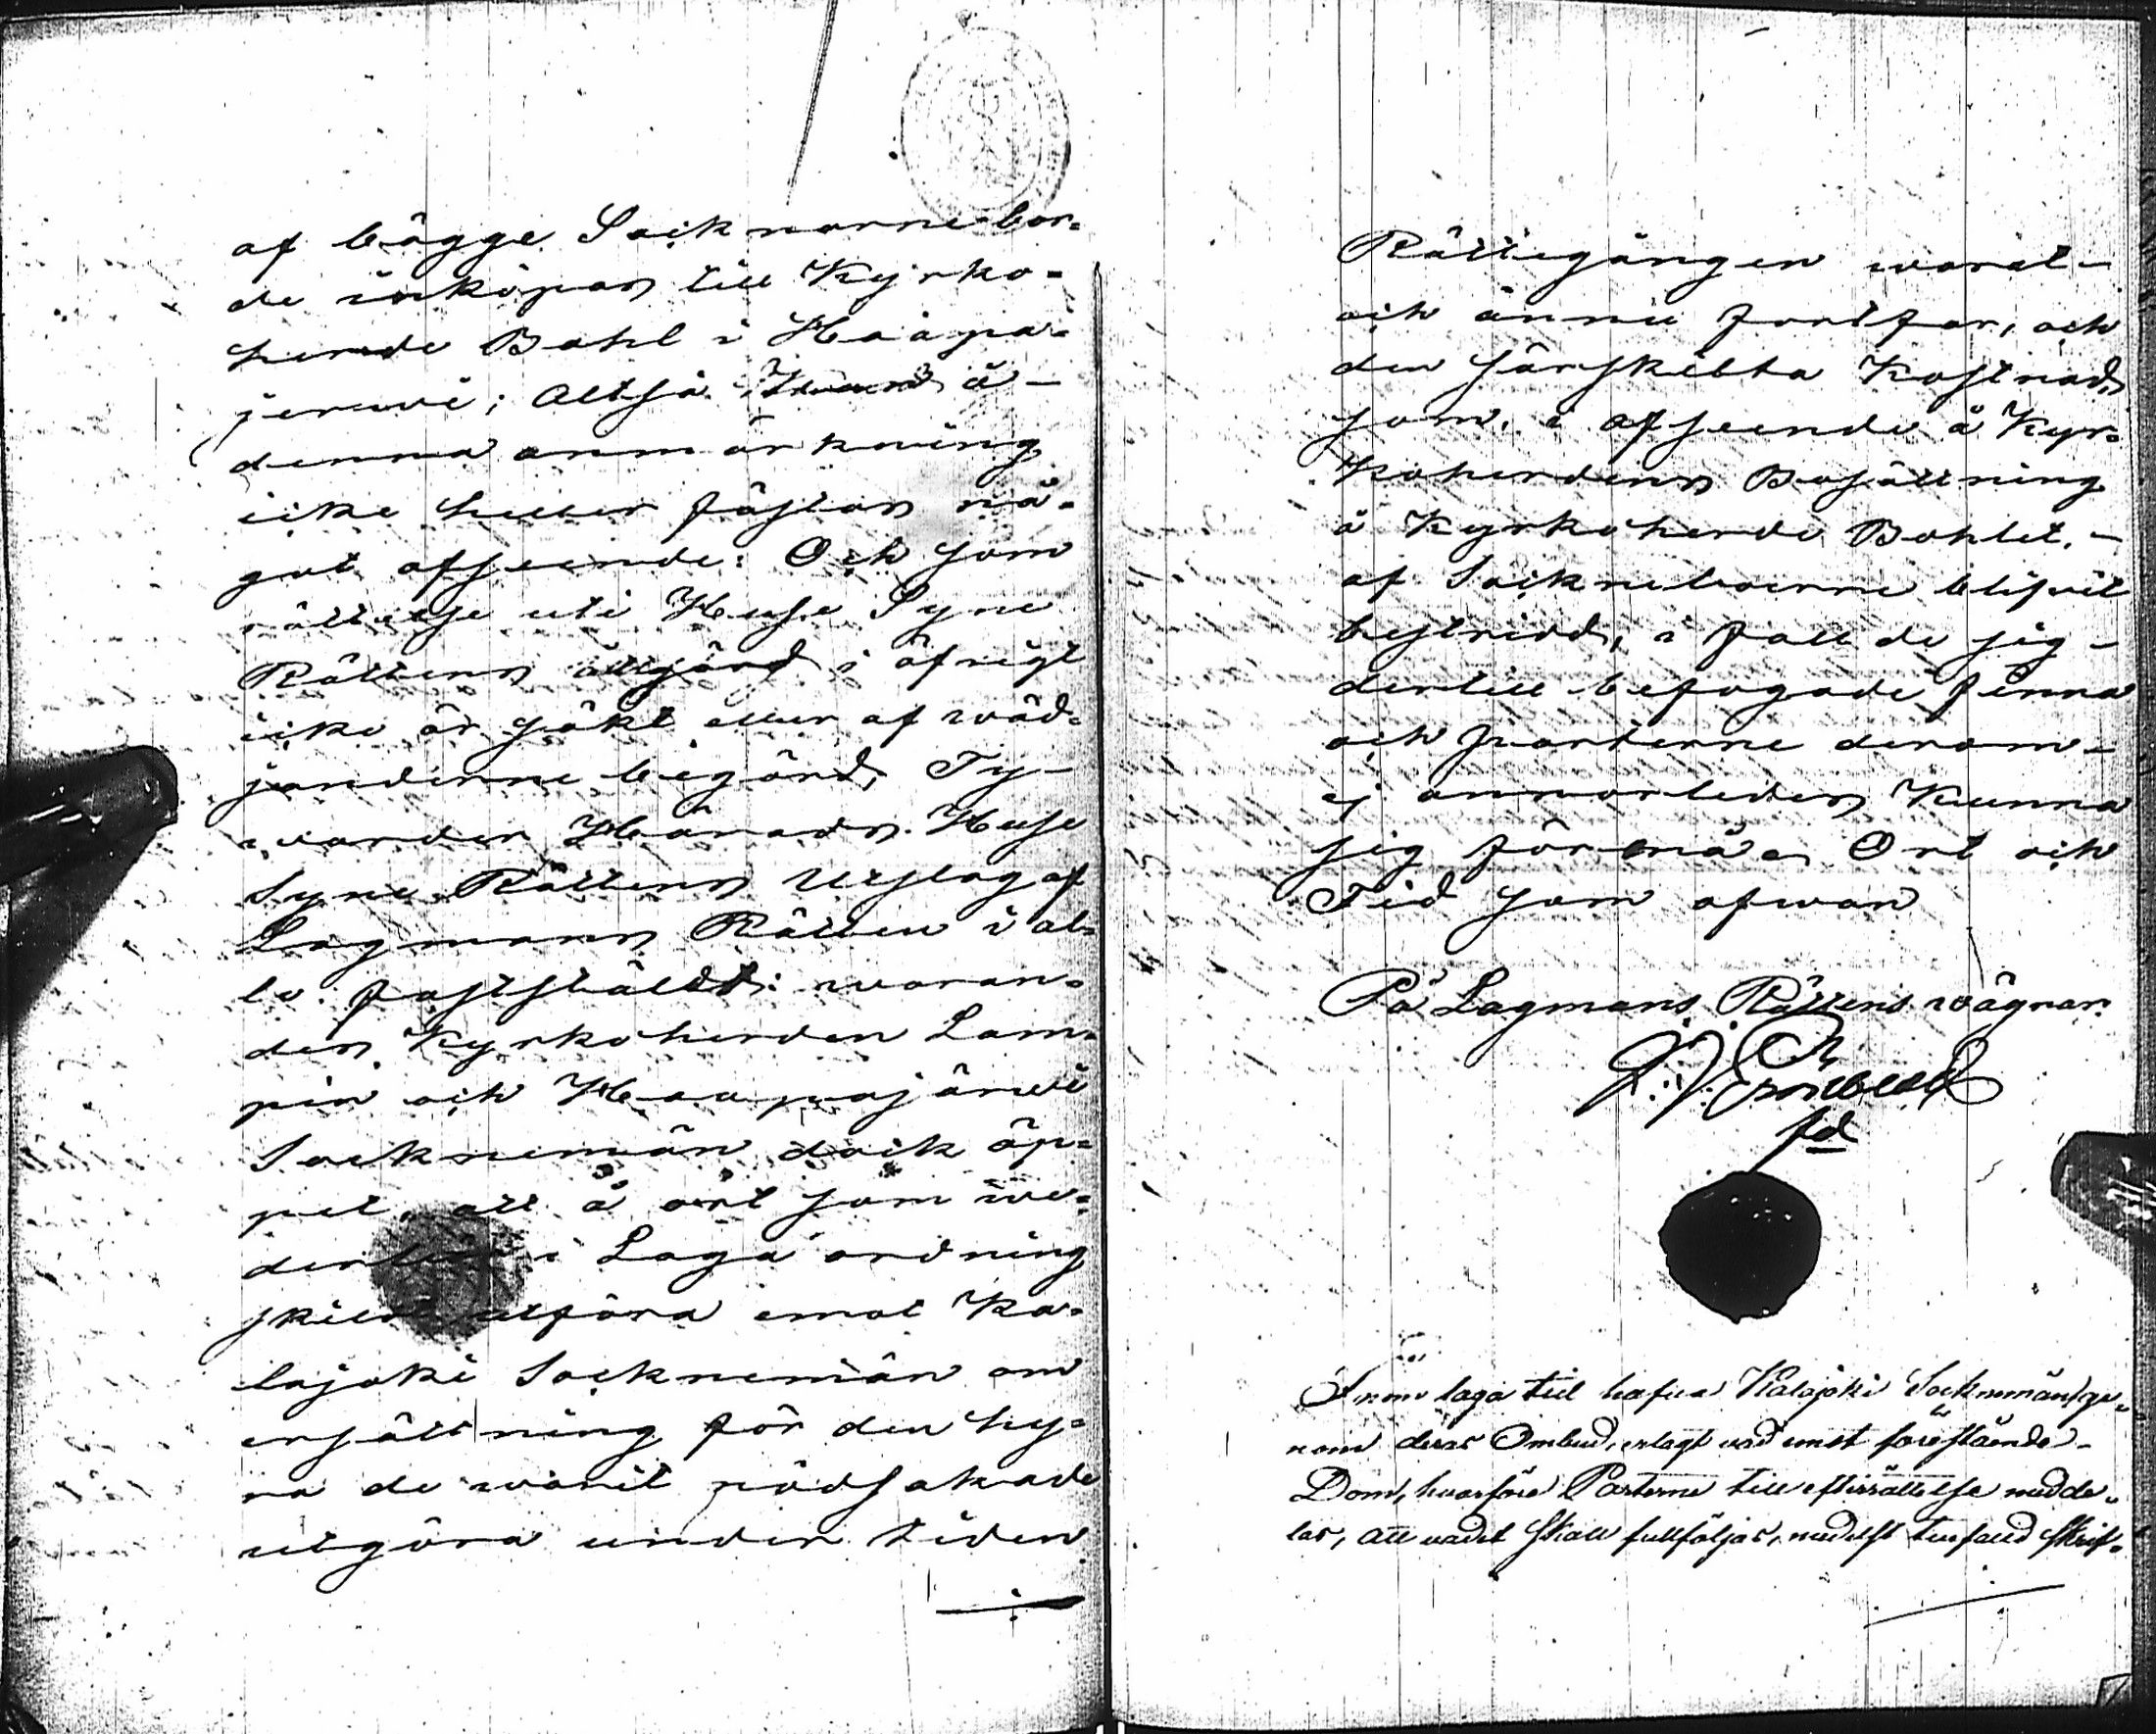 af bägge Socknarne bor=
de inköpas till Kyrko=
herde Bohl i Haapa=
jerwi; Altså å-
denna anmärkning
icke heller fästas nå=
got afseende: Och som
rättelse uti Huse Syne
Rättens åtgärd i öfrigt
icke är sökt eller af wäd=
janderne begärd, Ty-
warder Härads Huse
Syne Rättens Utslag af
Lagmans Rätten i al=
lo faststäldt: waran=
des Kyrkoherden Lam=
pin och Haapajärwi
Socknemän dock öp=
pet, att å ort som we=
derbör i Laga ordning
skildt utföra emot Ka=
lajoki Socknemän om
ersättning för den hy=
ra de warit nödsakade
utgöra under tiden
Rättegången warat-
och ännu fortfar, och
den särskildta Kostnad,
som i afseende å Kyr=
koherdens Bosättning
å Kyrkoherde Bohlet,-
af Sockneboerne blifvit
bestridd, i fall de sig-
dertill befogade finna
och parterne derom-
ej annorledes Kunna
sig förenas Ort och
Tid som ofwan
På Lagmans Rättens wägnar.
Inom laga tid hafva Kalajoki Socknemän, ge=
nom deras Ombud, erlagt vad emot förestående-
Dom, hvarföre Parterne till efterrättelse medde=
las, att vadet skall fullföljas, medelst till skrif=